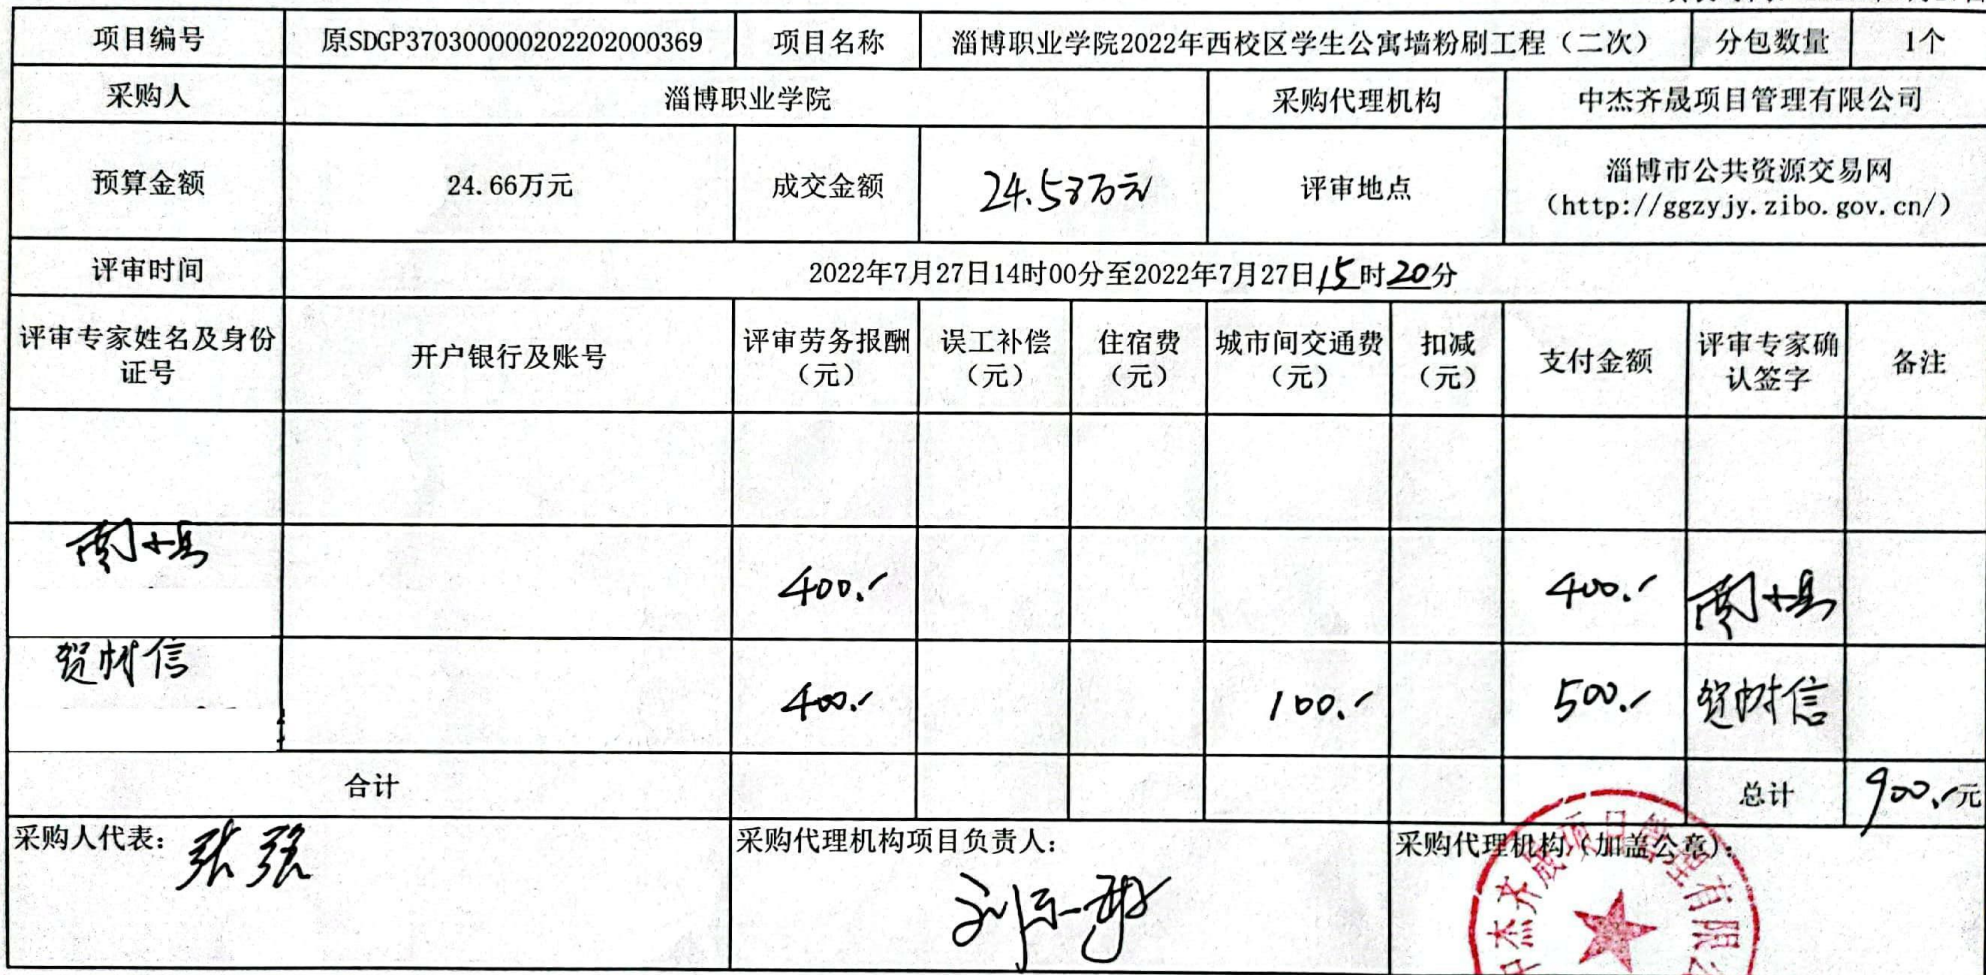 项目编号 原SDGP370300000202202000369 项目名称 淄博职业学院2022年西校区学生公寓墙粉刷工程（二次） 分包数量 1个
采购人 淄博职业学院 采购代理机构 中杰齐晟项目管理有限公司
预算金额 24.66万元 成交金额 24.53万元 评审地点 淄博市公共资源交易网
（http://ggzyjy.zibo.gov.cn/）
评审时间 2022年7月27日14时00分至2022年7月27日15时20分
评审专家姓名及身份
证号
开户银行及账号
评审劳务报酬
（元）
误工补偿
（元）
住宿费
（元）
城市间交通费
（元）
扣减
（元）
支付金额
评审专家确
认签字
备注
400.- 400.-
贺树信 400.- 100.- 500.- 贺树信
合计 总计 900.-元
采购人代表： 张强
采购代理机构项目负责人：
采购代理机构（加盖公章）：
中杰齐晟项目管理有限公